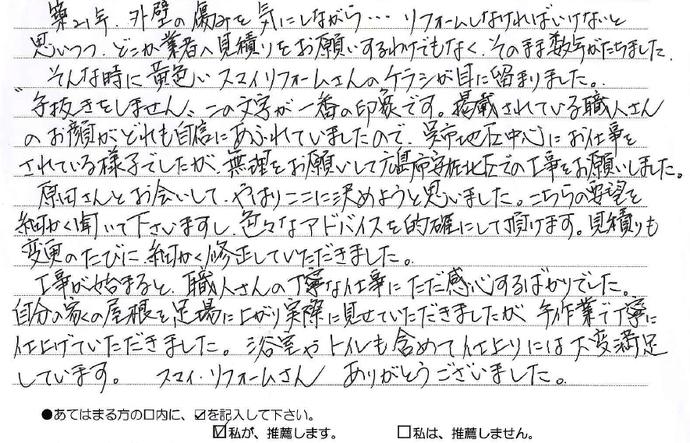 築21年、外壁の傷みを気にしながら…リフォームしなければいけないと
思いつつ、どこか業者へ見積りをお願いするわけでもなく、そのまま数年がたちました。
そんな時に黄色いスマイリフォームさんのチラシが目に留まりました。
"手抜きをしません"この文字が一番の印象です。掲載されている職人さん
のお顔がどれも自信にあふれていましたので、呉市地区中心にお仕事を
されている様子でしたが、無理をお願いして広島市安佐北区での工事をお願いしました。
原田さんとお会いして、やはりここに決めようと思いました。こちらの要望を
細かく聞いて下さいますし、色々なアドバイスを的確にして頂けます。見積りも
変更のたびに、細かく修正していただきました。
工事が始まると、職人さんの丁寧な仕事にただ感心するばかりでした。
自分の家の屋根を足場に上がり実際に見せていただきましたが、手作業で丁寧に
仕上げていただきました。浴室やトイレも含めて仕上りには大変満足
しています。 スマイ・リフォームさん ありがとうございました。
●あてはまる方の口内に、☑を記入して下さい。
☑私が、推薦します。 □私は、推薦しません。